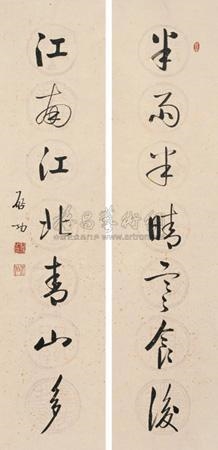 半雨半晴寒食後
江南江北青山多
啟功